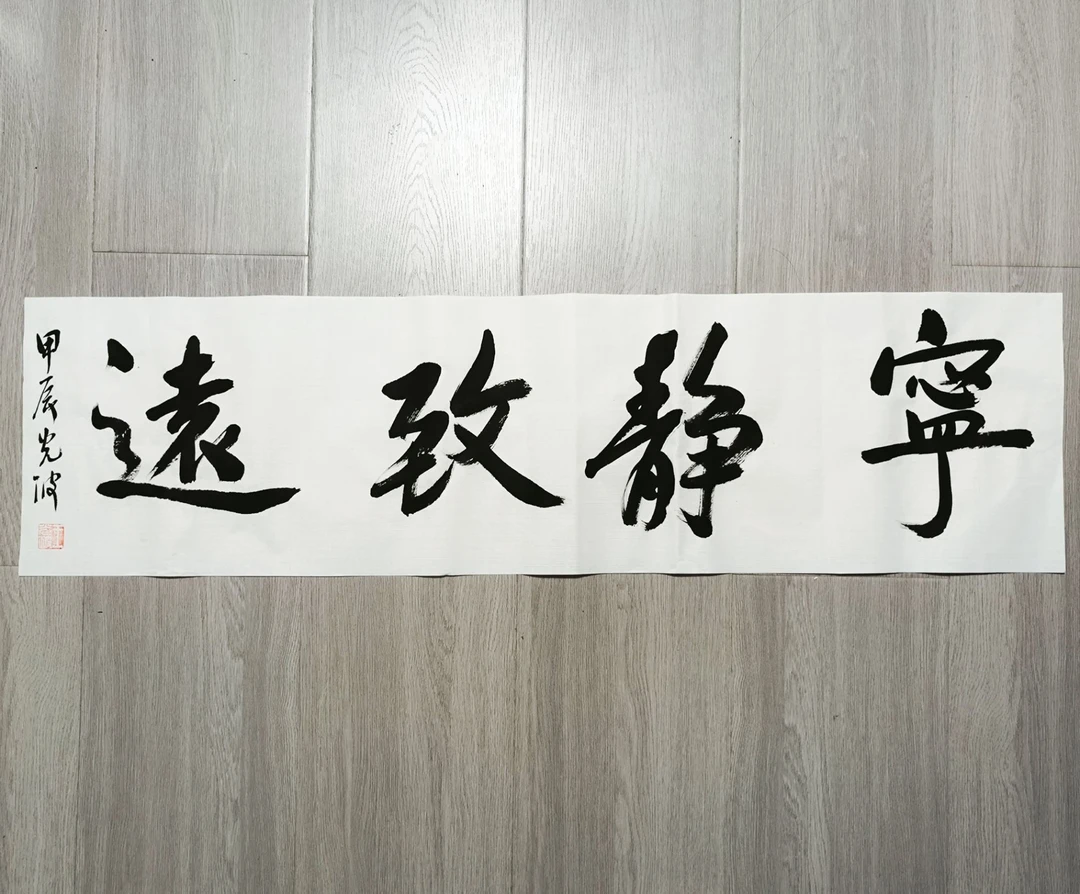 寧靜致遠
甲辰光波